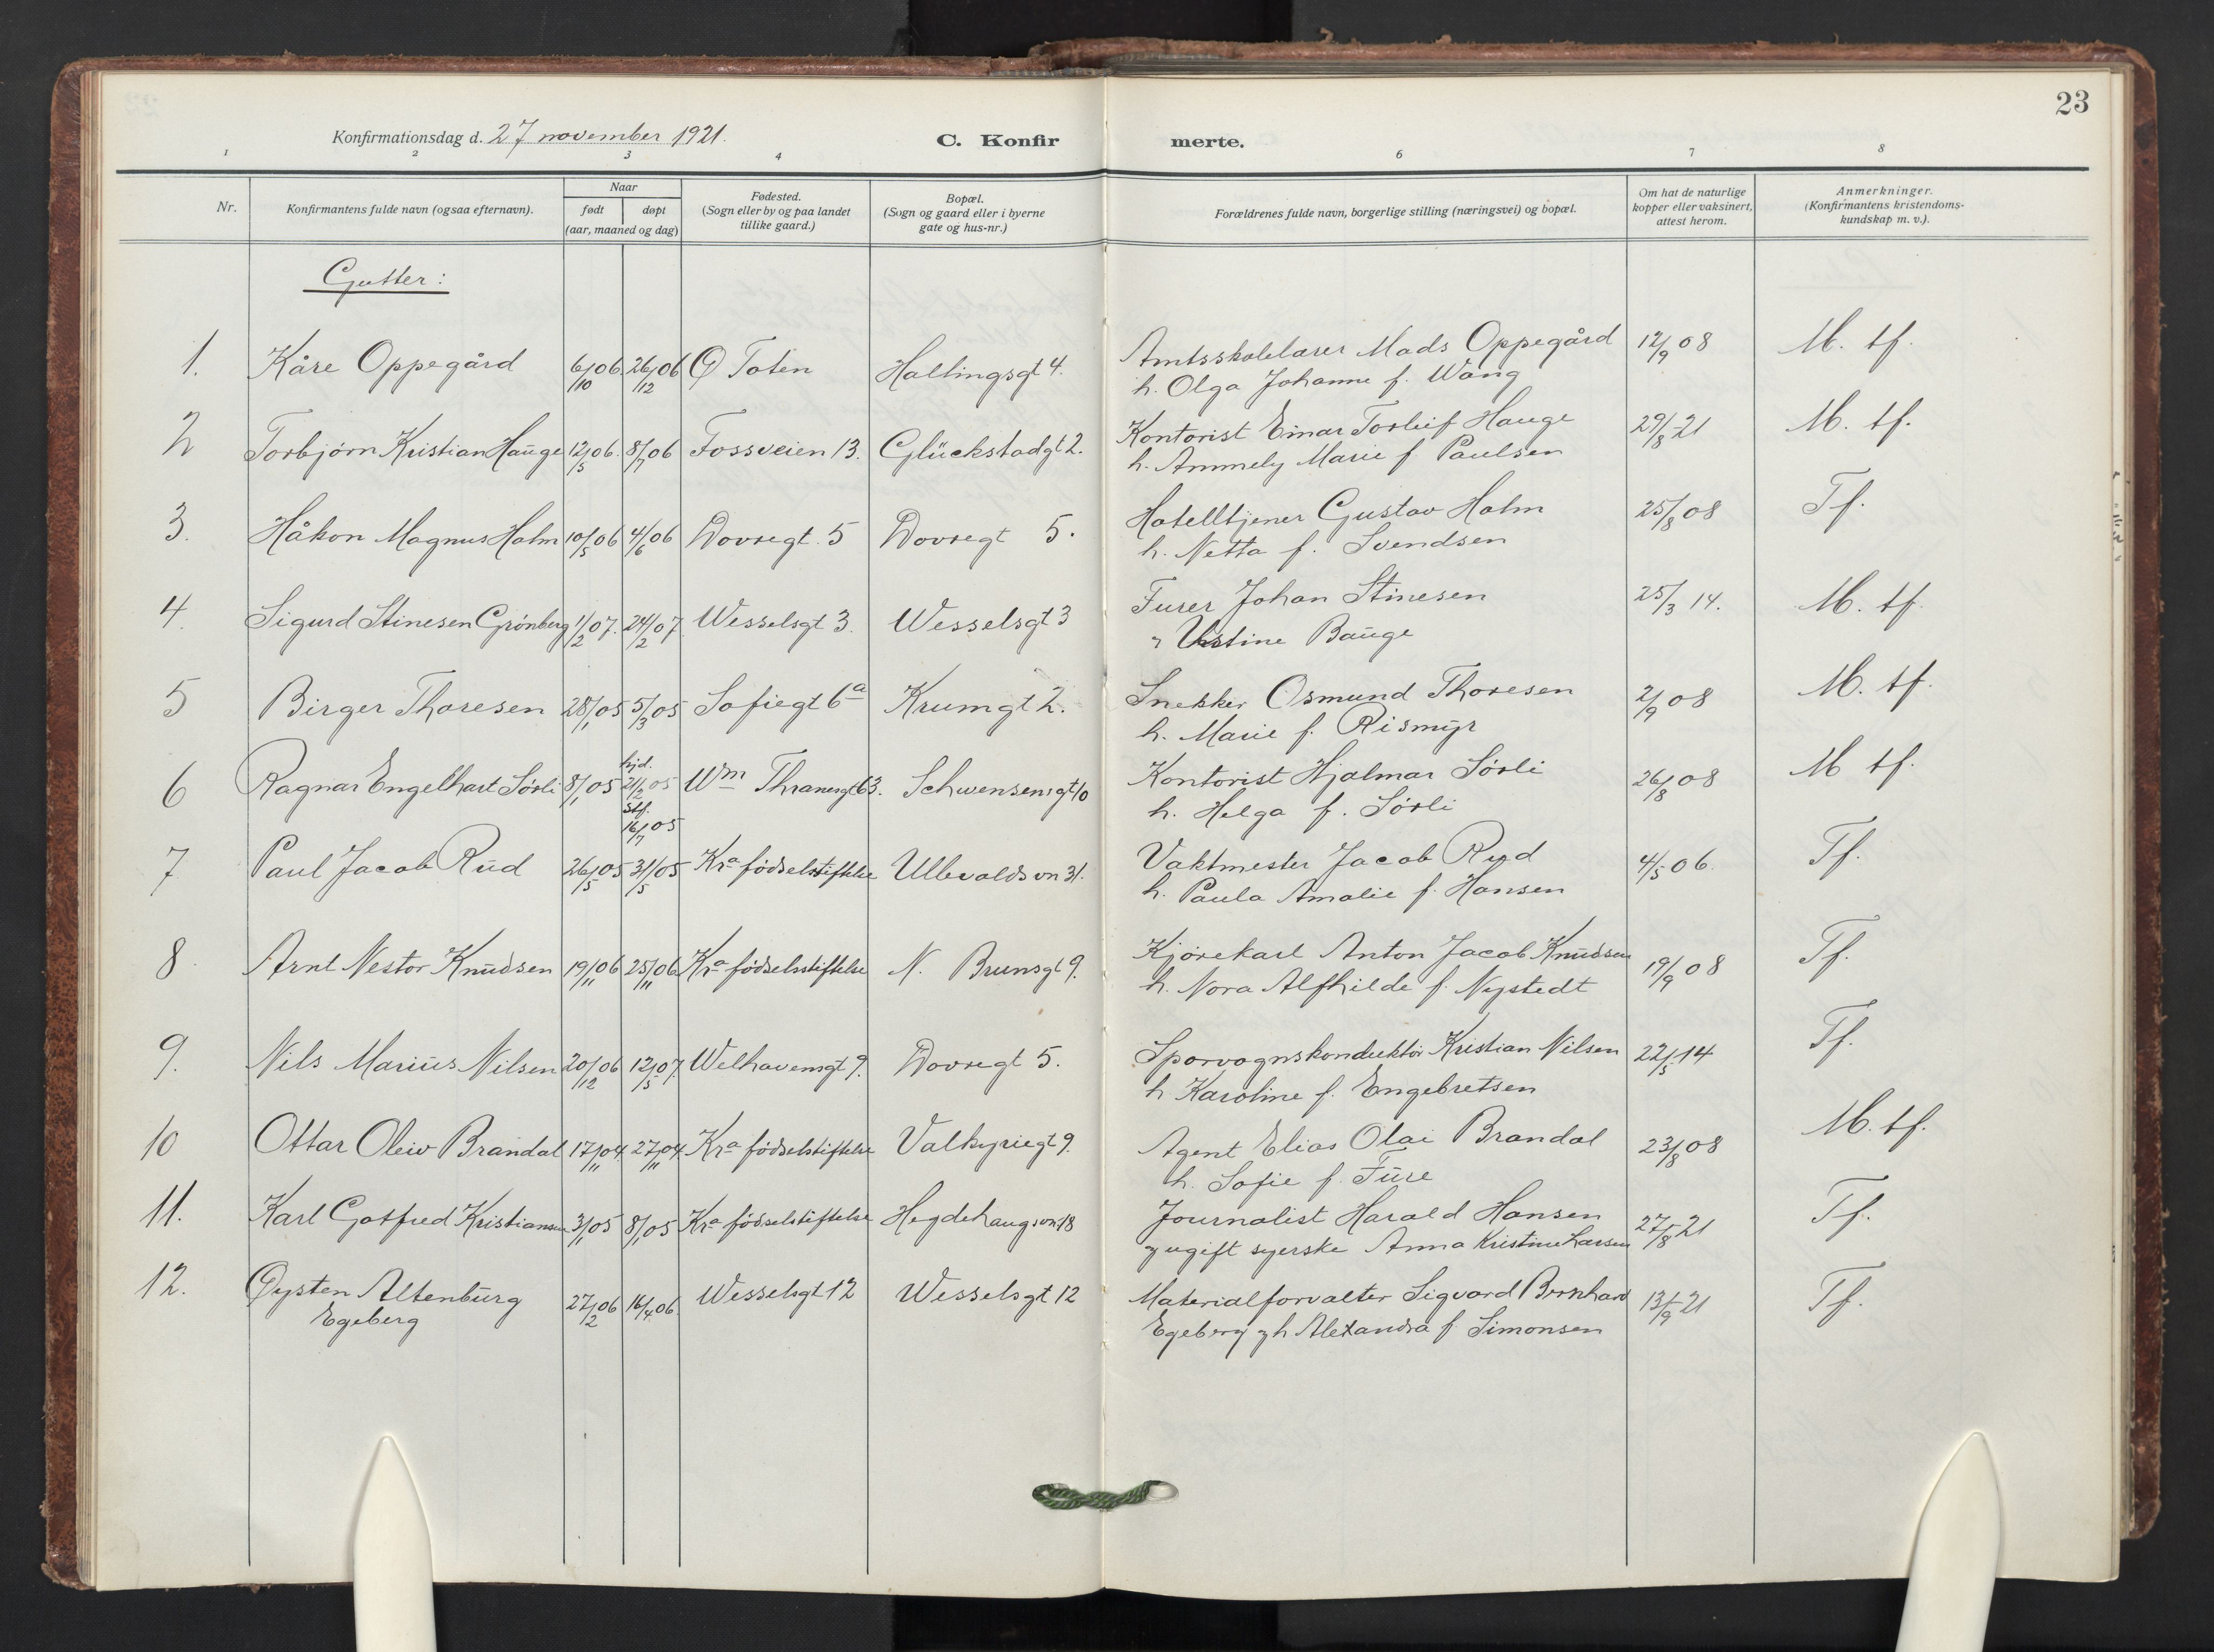 23
Konfirmationsdag d. 27 november 1921.
C. Konfirmerte.
1 2 3 4 6 7 8
Nr.
Konfirmantens fulde navn (ogsaa efternavn).
Naar
født døpt
(aar, maaned og dag)
Fødested.
(Sogn eller by og paa landet
tillike gaard.)
Bopæl.
(Sogn og gaard eller i byerne
gate og hus-nr.)
Forældrenes fulde navn, borgerlige stilling (næringsvei) og bopæl.
Om hat de naturlige
kopper eller vaksinert,
attest herom.
Anmerkninger.
(Konfirmantens kristendoms-
kundskap m. v.).
Gutter:
1. Kåre Oppegård 6/10 06 26/12 06 Ø Toten Hallingsgt 4. Amtsskolelærer Mads Oppegård 12/9 08 M. tf.
h. Olga Johanne f. Wang
2 Torbjørn Kristian Hauge 12/5 06. 8/7 06 Fossveien 13. Glückstadgt 2. Kontorist Einar Torleif Hauge 29/8-21 M. tf.
h. Ammely Marie f Paulsen
3. Håkon Magnus Holm 10/5 06 4/6 06 Dovregt. 5 Dovregt 5. Hotelltjener Gustav Holm 25/8 08 Tf.
h. Netta f. Svendsen
4. Sigurd Stinesen Grønberg 1/2 07. 24/2 07 Wesselsgt 3. Wesselsgt 3 Furer Johan Stinesen 25/3 14. M. tf.
Bauge
5 Birger Thoresen 28/1 05 5/3 05 Sofiegt 6a Krumgt 2. Snekker Osmund Thoresen 2/9 08 M. tf.
h. Marie f. Rismyr
6 Ragnar Engelhart Sørli 8/1 05 hjd. 21/2 05 Stf. 16/7 05 Wm Thranesgt 63. Schwensensgt 10 Kontorist Hjalmar Sørli 26/8 08 M tf.
h. Helga f. Sørli
7 Paul Jacob Rud 26/5 05 31/5 05 Kra fødselsstiftelse Ullevoldsvn 31. Vaktmester Jacob Rud 4/5 06. Tf.
h. Paula Amalie f. Hansen
8 Arnt Nestor Knudsen 19/11 06 25/11 06 Kra fødselsstiftelse N. Brunsgt 9. Kjørekarl Anton Jacob Knudsen 19/9 08 Tf.
h. Nora Alfhilde f. Nystedt
9. Nils Marius Nilsen 20/12 06 12/5 07. Welhavensgt 9. Dovregt 5. Sporvognskonduktør Kristian Nilsen 22/5 14 Tf.
h Karoline f. Engebretsen
10 Ottar Oleiv Brandal 17/11 04. 27/11 04 Kra fødselsstiftelse Valkyriegt 9. Agent Elias Olai Brandal 23/8 08 M. tf.
h. Sofie f. Fure
11. Karl Gotfred Kristiansen 3/1 05 8/1 05 Kra fødselsstiftelse Hegdehaugsvn 18 Journalist Harald Hansen 27/8-21 Tf.
og ugift syerske Anna Kristine Larsen
12. Øysten Altenburg 27/2 06 16/4 06. Wesselsgt 12 Wesselsgt 12 Materialforvalter Sigvard Bernhard 13/9-21 Tf.
Egeberg Egeberg og h Alexandra f. Simonsen